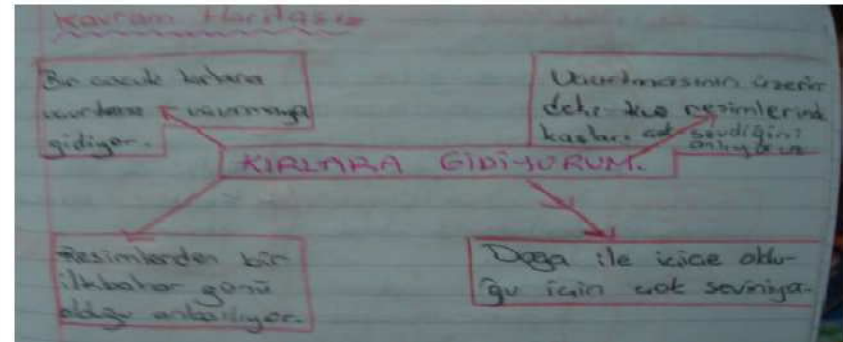 Kavram Haritası
Bir çocuk kırlara
uçurtma uçurmaya
gidiyor.
Uçurtmasının üzerin
deki kuş resimlerinden
kuşları çok sevdiğini
anlıyoruz
KIRLARA GİDİYORUM.
Resimlerden bir
ilkbahar günü
olduğu anlaşılıyor.
Doğa ile içiçe oldu-
ğu için çok seviniyor.